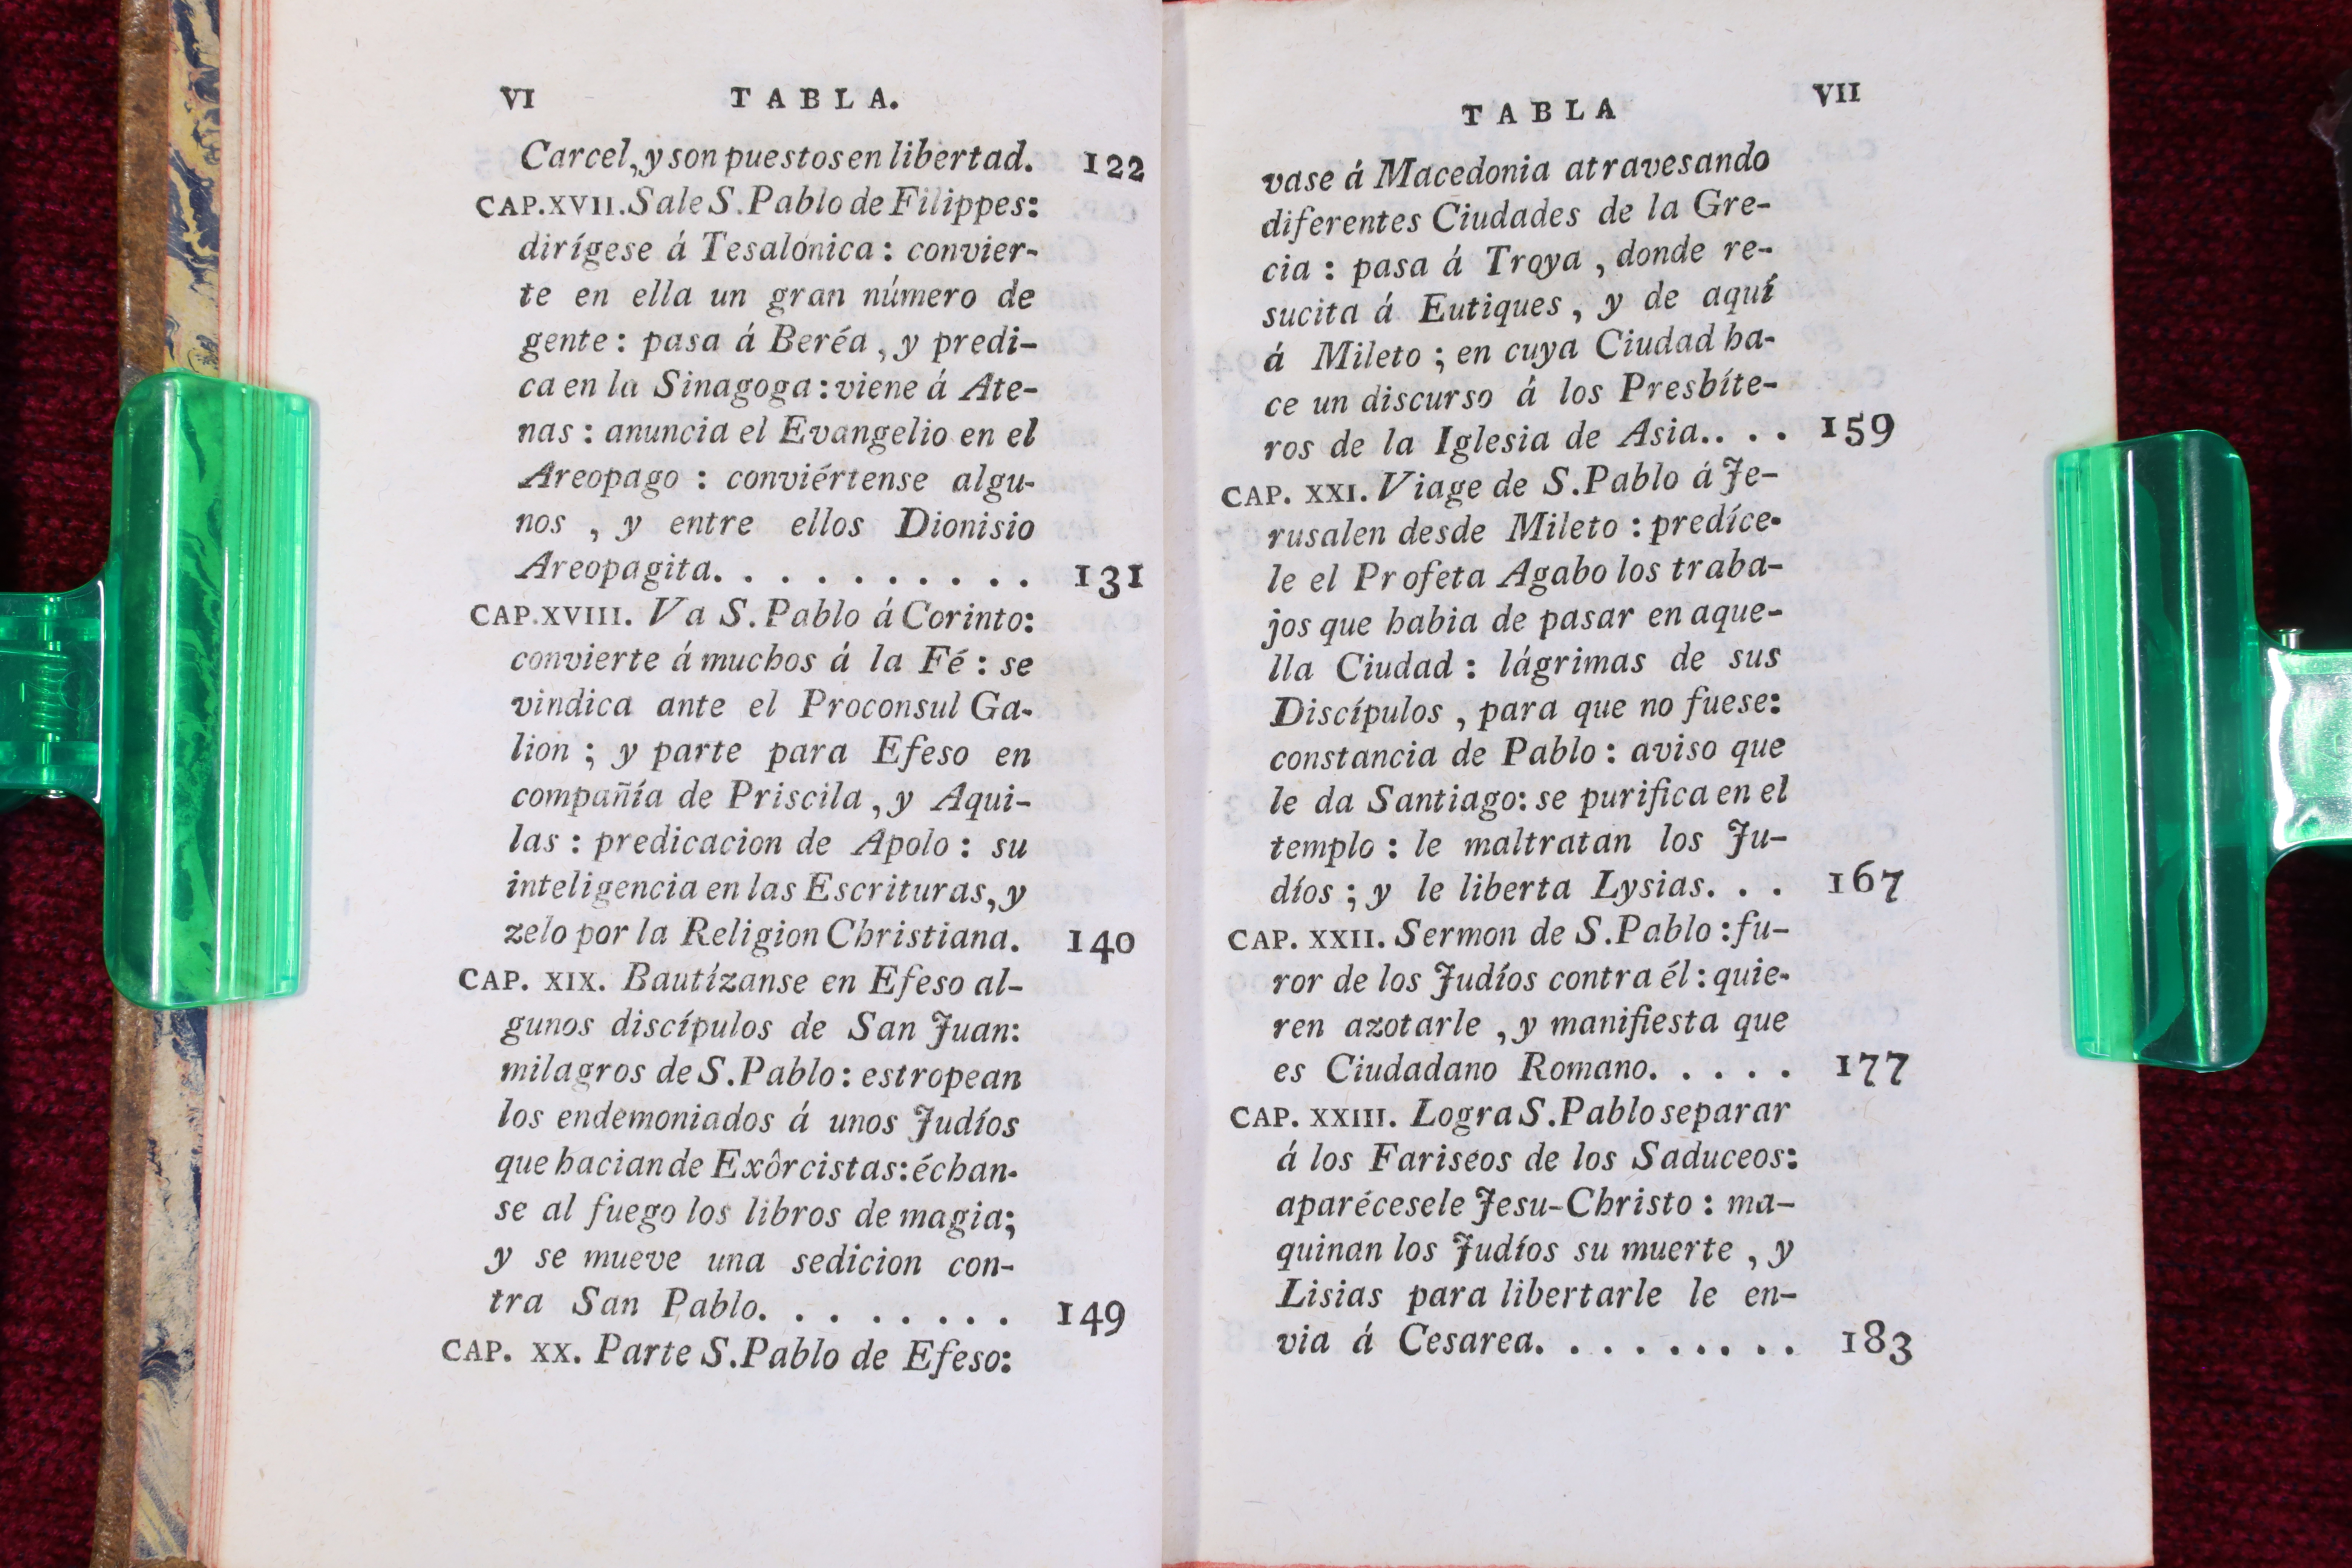 VI TABLA.
Carcel, y son puestos en libertad. 122
CAP. XVII. Sale S. Pablo de Filippes:
dirígese á Tesalónica : convier-
te en ella un gran número de
gente : pasa á Beréa , y predi-
ca en la Sinagoga : viene á Ate-
nas : anuncia el Evangelio en el
Areopago : conviértense algu-
nos , y entre ellos Dionisio
Areopagita. . . . . . . . . . 131
CAP. XVIII. Va S. Pablo á Corinto:
convierte á muchos á la Fé : se
vindica ante el Proconsul Ga-
lion ; y parte para Efeso en
compañía de Priscila , y Aqui-
las : predicacion de Apolo : su
inteligencia en las Escrituras, y
zelo por la Religion Christiana. 140
CAP. XIX. Bautízanse en Efeso al-
gunos discípulos de San Juan:
milagros de S. Pablo : estropean
los endemoniados á unos Judíos
que hacian de Exôrcistas: échan-
se al fuego los libros de magia;
y se mueve una sedicion con-
tra San Pablo. . . . . . . . 149
CAP. XX. Parte S. Pablo de Efeso:
TABLA VII
vase á Macedonia atravesando
diferentes Ciudades de la Gre-
cia : pasa á Troya , donde re-
sucita á Eutiques , y de aquí
á Mileto ; en cuya Ciudad ha-
ce un discurso á los Presbíte-
ros de la Iglesia de Asia.. . . 159
CAP. XXI. Viage de S. Pablo á Je-
rusalen desde Mileto : predíce-
le el Profeta Agabo los traba-
jos que habia de pasar en aque-
lla Ciudad : lágrimas de sus
Discípulos , para que no fuese:
constancia de Pablo : aviso que
le da Santiago: se purifica en el
templo : le maltratan los Ju-
díos ; y le liberta Lysias. . . 167
CAP. XXII. Sermon de S. Pablo : fu-
ror de los Judíos contra él : quie-
ren azotarle , y manifiesta que
es Ciudadano Romano. . . . . 177
CAP. XXIII. Logra S. Pablo separar
á los Fariseos de los Saduceos:
aparécesele Jesu-Christo : ma-
quinan los Judíos su muerte , y
Lisias para libertarle le en-
via á Cesarea. . . . . . . . . 183